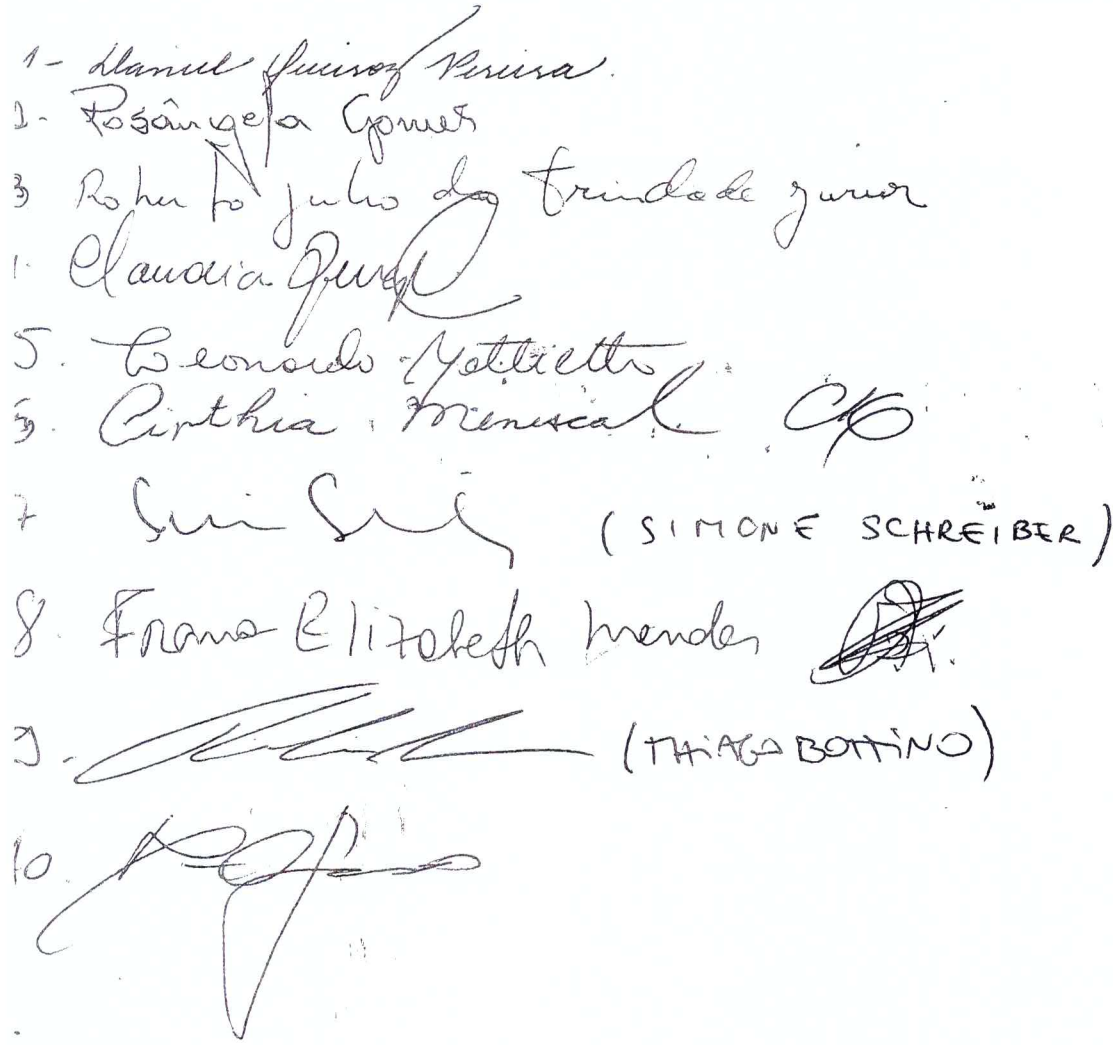 1- Daniel Queiroz Pereira.
2- Rosângela Gomes
3 Roberto Julio da Trindade Junior
Claudia
5. Leonardo Mattietto
6. Cinthia Menescal
7 (SIMONE SCHREIBER)
8. Elizabeth Mendes
9. (THIAGO BOTTINO)
10.